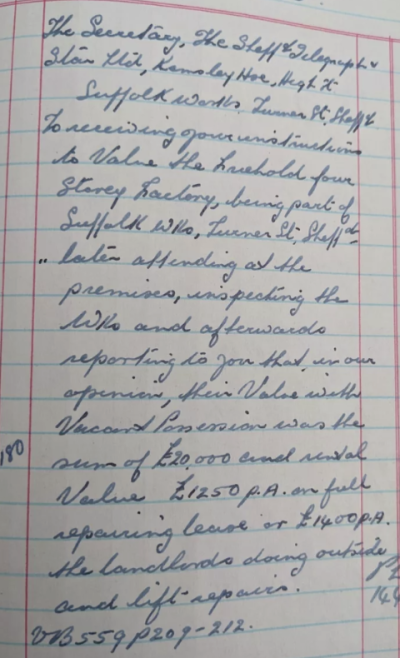 The Secretary, The Sheffd Telegraph &
Star Ltd, Kemsley Hse, High St
Suffolk Works, Turner St, Sheffd
To receiving your instructions
to Value the freehold four
Storey Factory, being part of
Suffolk Wks, Turner St, Sheffd
" later attending at the
premises, inspecting the
Wks and afterwards
reporting to you that, in our
opinion, their Value with
Vacant Possession was the
180 sum of £20,000 and rental
Value £1250 p.A. on full
repairing lease or £1400 p.A.
the landlords doing outside
and lift repairs.
VB559 p209-212.